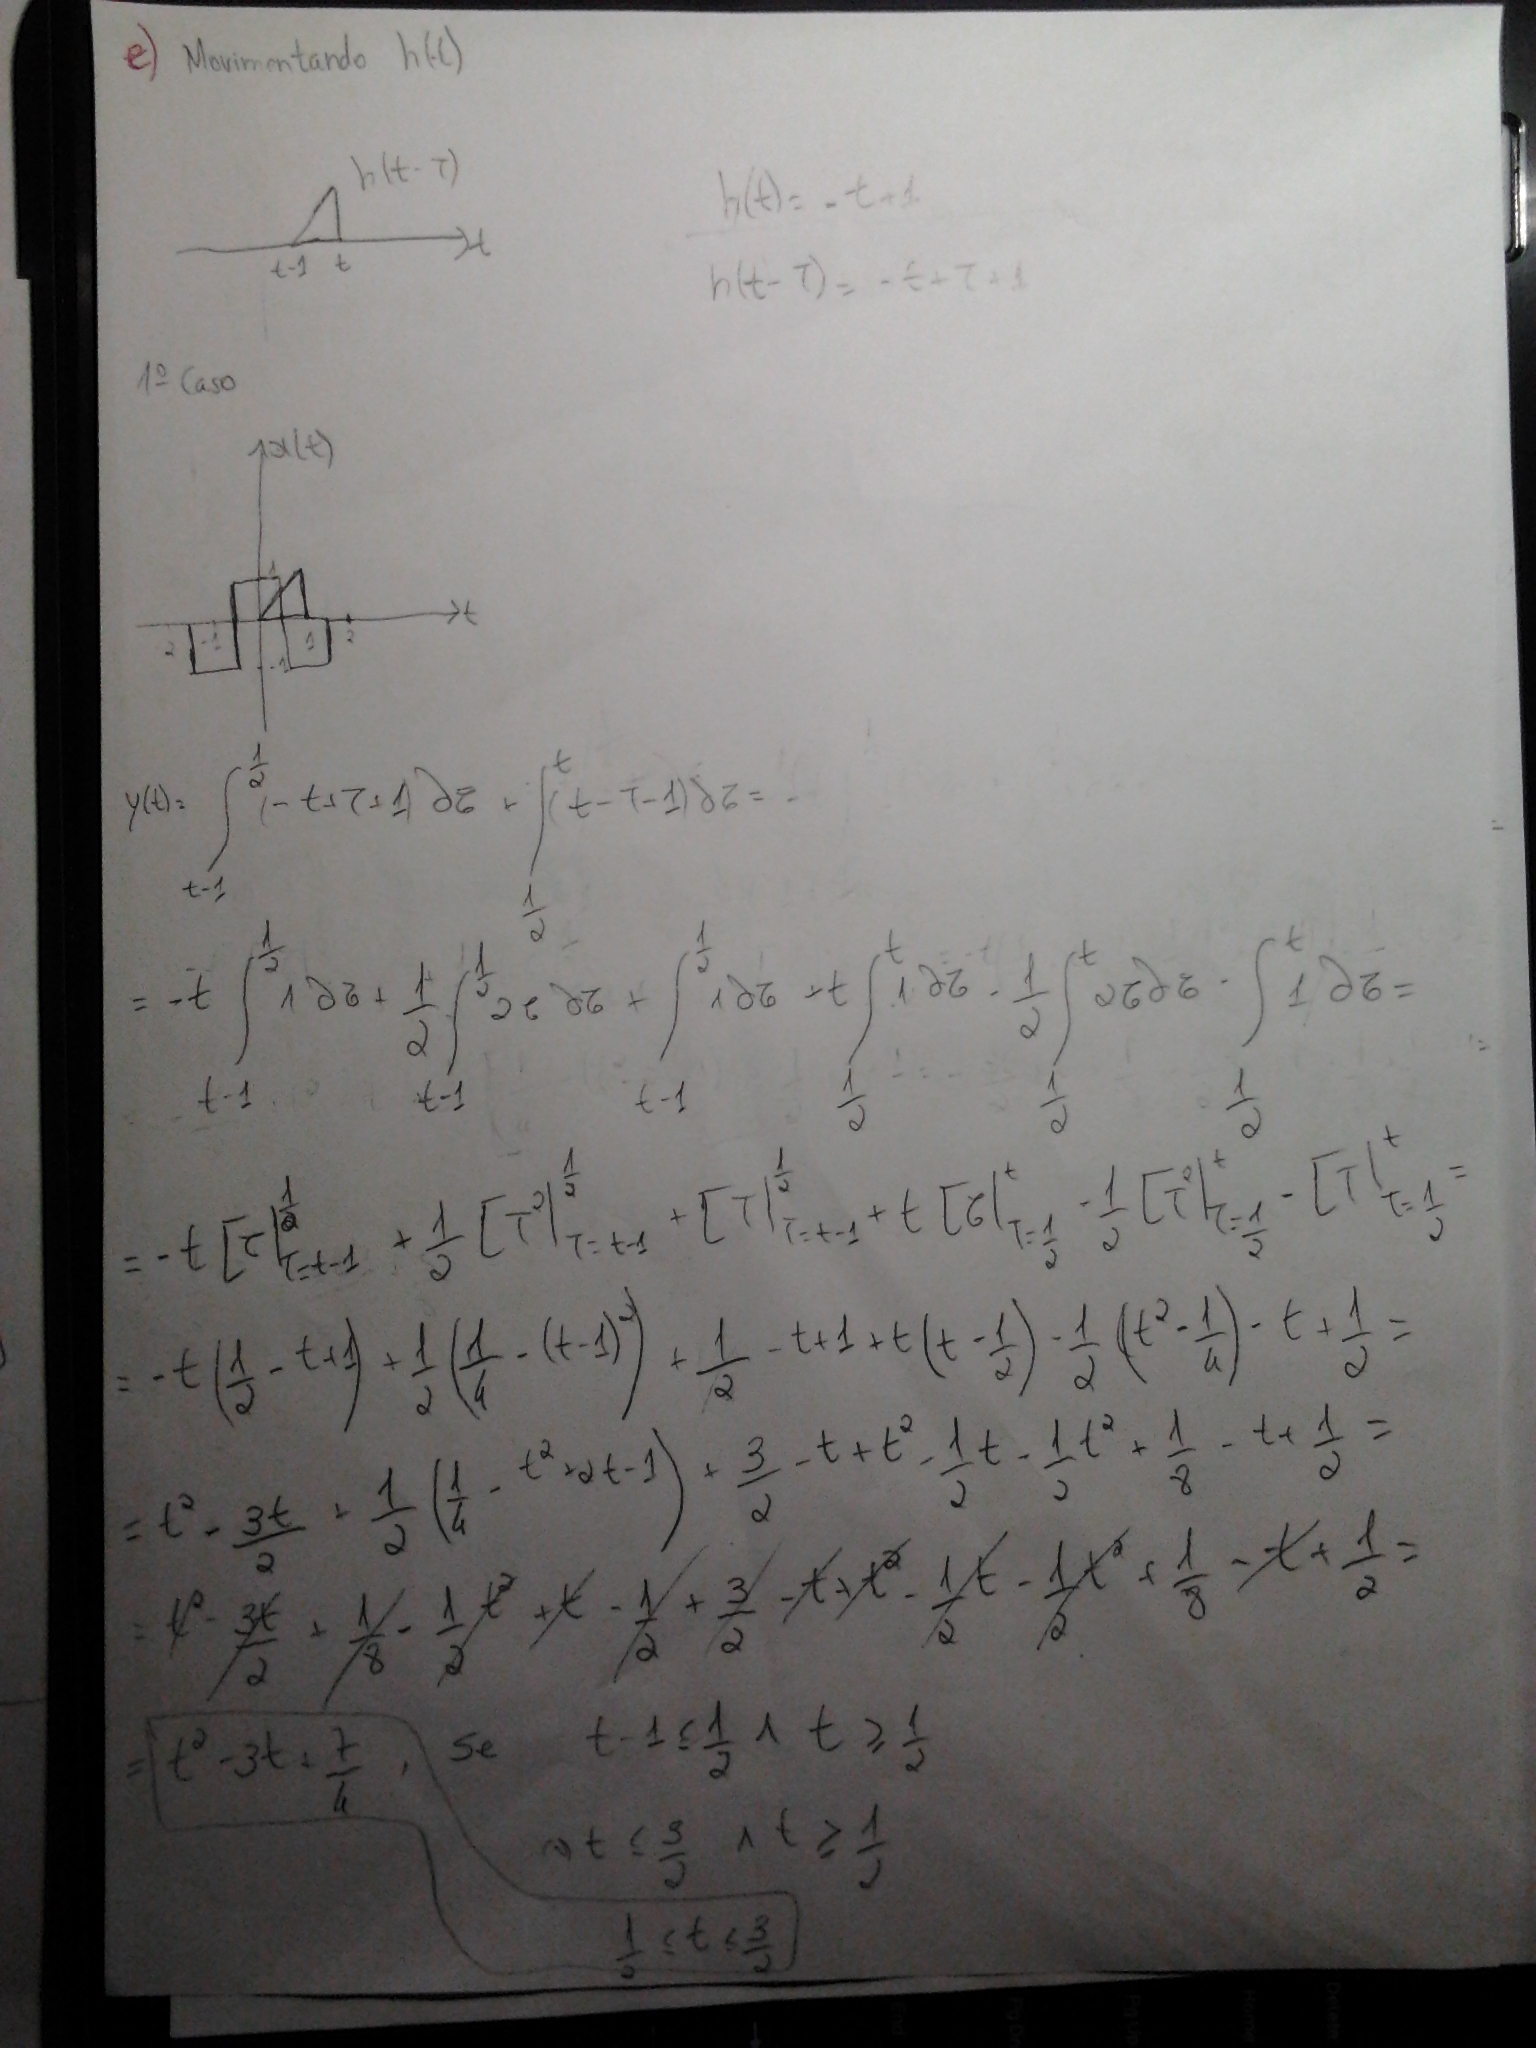 e) Movimentando h(-t)
h(t-τ)
t-1 t →t
h(t) = -t+1
h(t-τ) = -t+τ+1
1º Caso
x(t)
1
-2 -1 1 2 →t
-1
y(t) = ∫_{t-1}^{1/2} (-t+τ+1) ∂τ + ∫_{1/2}^{t} (t-τ-1) ∂τ =
= -t ∫_{t-1}^{1/2} 1 ∂τ + 1/2 ∫_{t-1}^{1/2} 2τ ∂τ + ∫_{t-1}^{1/2} 1 ∂τ + t ∫_{1/2}^{t} 1 ∂τ - 1/2 ∫_{1/2}^{t} 2τ ∂τ - ∫_{1/2}^{t} 1 ∂τ =
= -t [τ|_{τ=t-1}^{1/2} + 1/2 [τ²|_{τ=t-1}^{1/2} + [τ|_{τ=t-1}^{1/2} + t [τ|_{τ=1/2}^{t} - 1/2 [τ²|_{τ=1/2}^{t} - [τ|_{τ=1/2}^{t} =
= -t (1/2 - t+1) + 1/2 (1/4 - (t-1)²) + 1/2 - t+1 + t (t - 1/2) - 1/2 (t² - 1/4) - t + 1/2 =
= t² - 3t/2 + 1/2 (1/4 - t² + 2t - 1) + 3/2 - t + t² - 1/2 t - 1/2 t² + 1/8 - t + 1/2 =
= t² - 3t/2 + 1/8 - 1/2 t² + t - 1/2 + 3/2 - t + t² - 1/2 t - 1/2 t² + 1/8 - t + 1/2 =
= t² - 3t + 7/4 , se t-1 ≤ 1/2 ∧ t ≥ 1/2
⇒ t ≤ 3/2 ∧ t ≥ 1/2
1/2 ≤ t ≤ 3/2